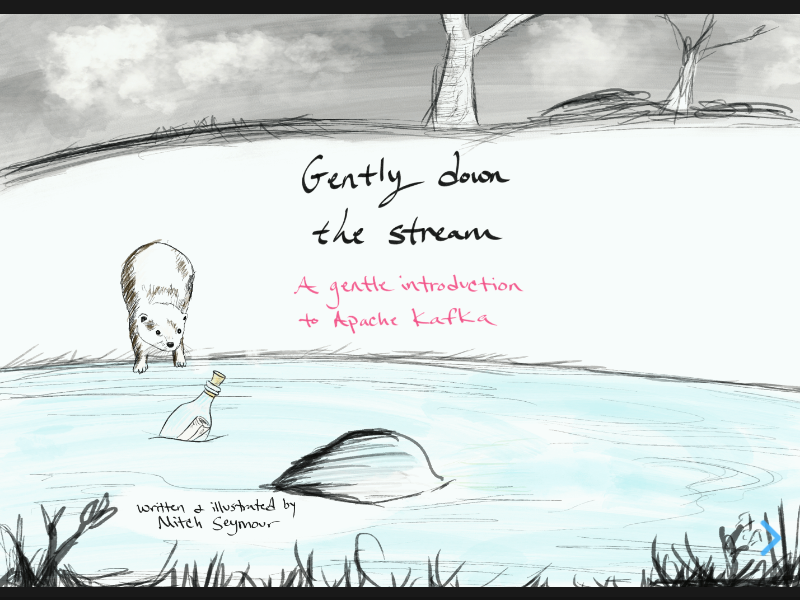 Gently down
the stream
A gentle introduction
to Apache Kafka
written & illustrated by
Mitch Seymour